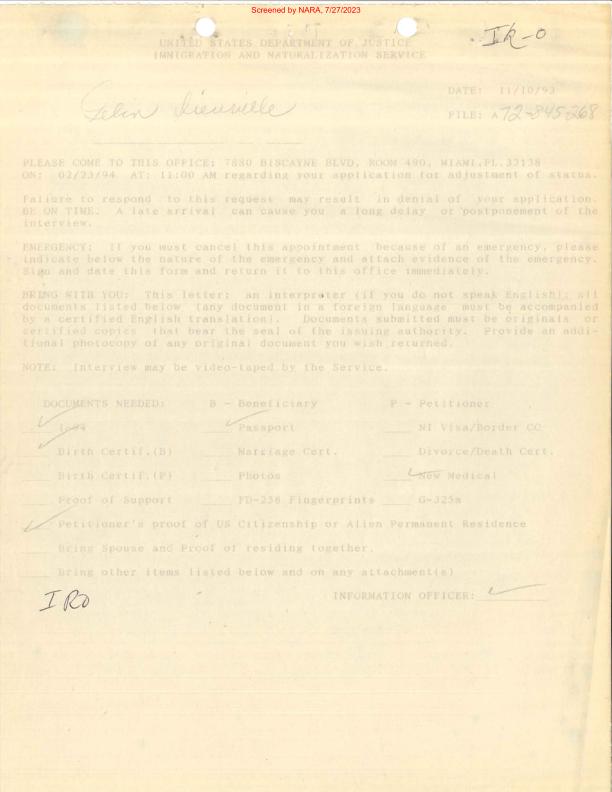 Screened by NARA, 7/27/2023
IR-0
UNITED STATES DEPARTMENT OF JUSTICE
IMMIGRATION AND NATURALIZATION SERVICE
DATE: 11/10/93
FILE: A 72-845-268
PLEASE COME TO THIS OFFICE: 7880 BISCAYNE BLVD, ROOM 490, MIAMI,FL.33138
ON: 02/23/94 AT: 11:00 AM regarding your application for adjustment of status.
Failure to respond to this request may result in denial of your application.
BE ON TIME. A late arrival can cause you a long delay or postponement of the
interview.
EMERGENCY: If you must cancel this appointment because of an emergency, please
indicate below the nature of the emergency and attach evidence of the emergency.
Sign and date this form and return it to this office immediately.
BRING WITH YOU: This letter; an interpreter (if you do not speak English); all
documents listed below (any document in a foreign language must be accompanied
by a certified English translation). Documents submitted must be originals or
certified copies that bear the seal of the issuing authority. Provide an addi-
tional photocopy of any original document you wish returned.
NOTE: Interview may be video-taped by the Service.
DOCUMENTS NEEDED: B - Beneficiary P - Petitioner
I-94 Passport NI Visa/Border CC
Birth Certif.(B) Marriage Cert. Divorce/Death Cert.
Birth Certif.(P) Photos New Medical
Proof of Support FD-258 Fingerprints G-325a
Petitioner's proof of US Citizenship or Alien Permanent Residence
Bring Spouse and Proof of residing together.
Bring other items listed below and on any attachment(s)
IRO INFORMATION OFFICER: